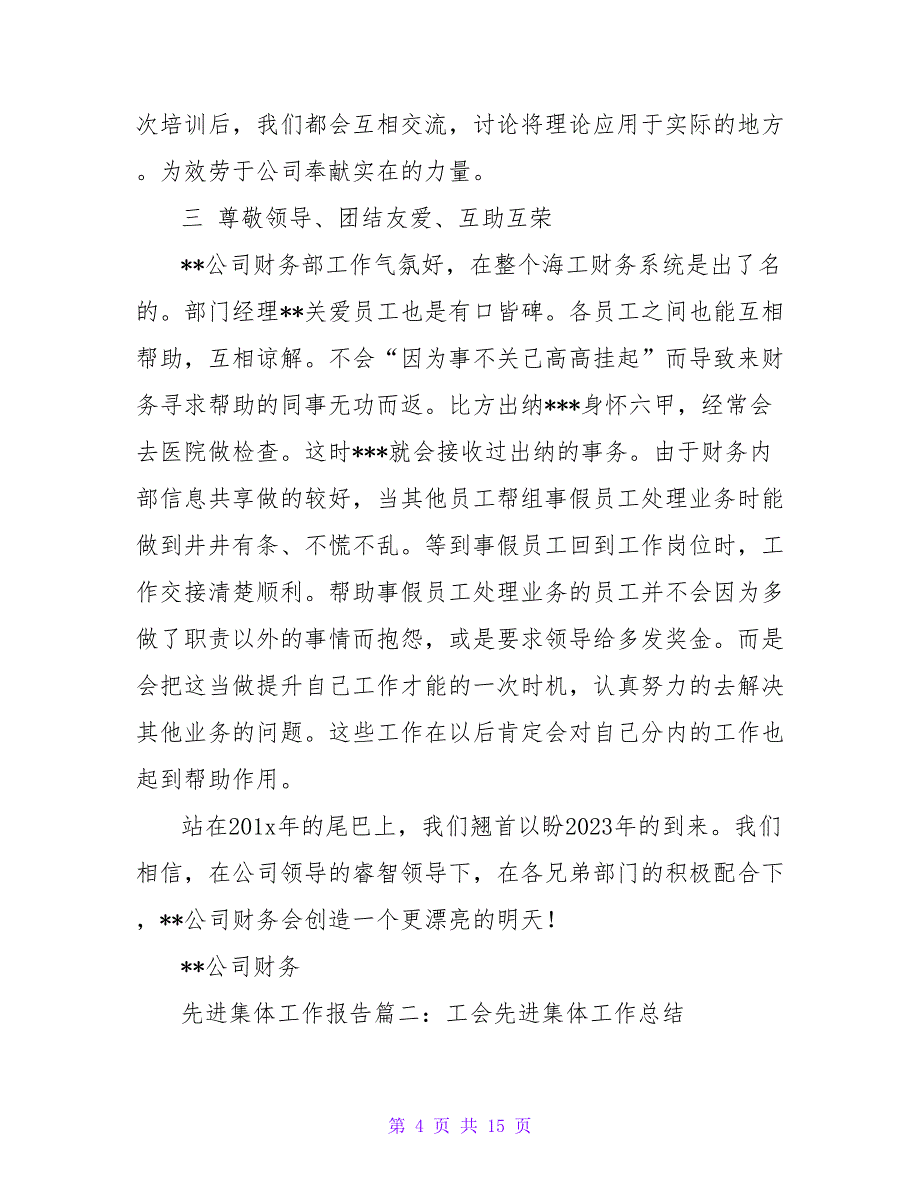 次培训后，我们都会互相交流，讨论将理论应用于实际的地方
。为效劳于公司奉献实在的力量。
三 尊敬领导、团结友爱、互助互荣
**公司财务部工作气氛好，在整个海工财务系统是出了名
的。部门经理**关爱员工也是有口皆碑。各员工之间也能互相
帮助，互相谅解。不会“因为事不关己高高挂起”而导致来财
务寻求帮助的同事无功而返。比方出纳***身怀六甲，经常会
去医院做检查。这时***就会接收过出纳的事务。由于财务内
部信息共享做的较好，当其他员工帮组事假员工处理业务时能
做到井井有条、不慌不乱。等到事假员工回到工作岗位时，工
作交接清楚顺利。帮助事假员工处理业务的员工并不会因为多
做了职责以外的事情而抱怨，或是要求领导给多发奖金。而是
会把这当做提升自己工作才能的一次时机，认真努力的去解决
其他业务的问题。这些工作在以后肯定会对自己分内的工作也
起到帮助作用。
站在201x年的尾巴上，我们翘首以盼2023年的到来。我们
相信，在公司领导的睿智领导下，在各兄弟部门的积极配合下
，**公司财务会创造一个更漂亮的明天！
**公司财务
先进集体工作报告篇二：工会先进集体工作总结
第 4 页 共 15 页